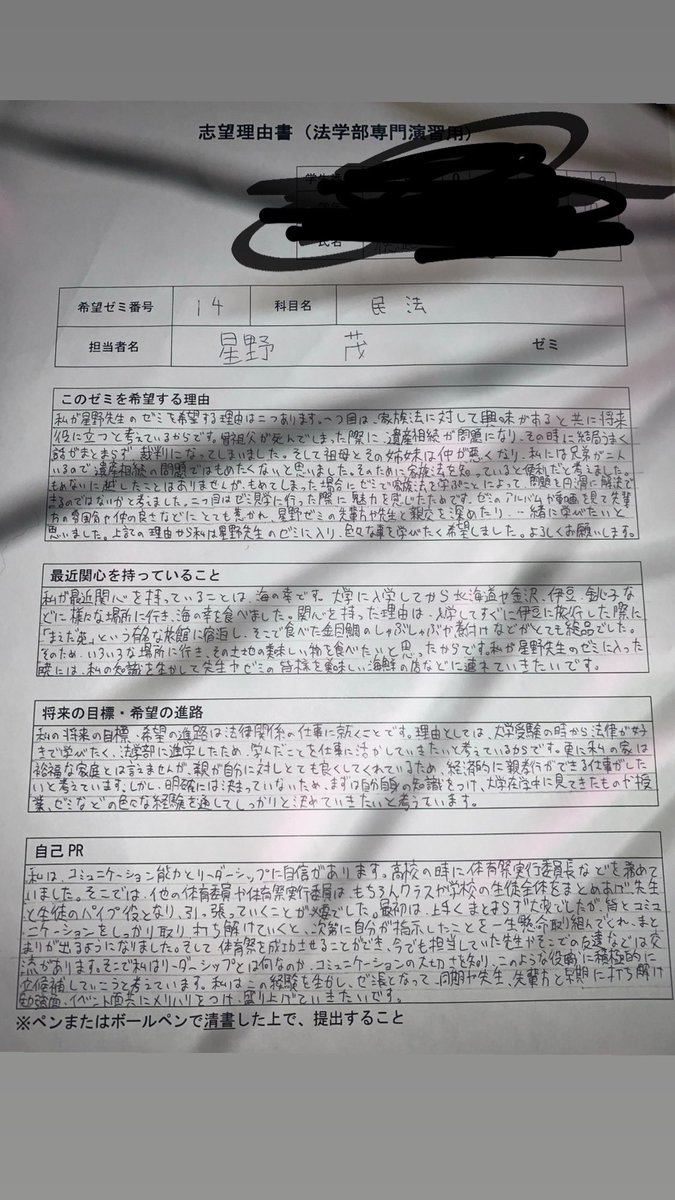 志望理由書（法学部専門演習用）
氏名
希望ゼミ番号 14 科目名 民法
担当者名 星野 茂 ゼミ
このゼミを希望する理由
私が星野先生のゼミを希望する理由は二つあります。一つ目は、家族法に対して興味があると共に将来
役に立つと考えているからです。曽祖父が死んでしまった際に、遺産相続が問題になり、その時に結局うまく
話がまとまらず、裁判になってしまいました。そして祖母とその姉妹は仲が悪くなり、私には兄弟が二人
いるので遺産相続の問題ではもめたくないと思いました。そのために家族法を知っていると便利だと考えました。
もめないに越したことはありませんが、もめてしまった場合にゼミで家族法を学ぶことによって問題を円滑に解決で
きるのではないかと考えました。二つ目はゼミ見学に行った際に魅力を感じたためです。ゼミのアルバムや動画を見て先輩
方の雰囲気や仲の良さなどにとても惹かれ、星野ゼミの先輩方や先生と親交を深めたり、一緒に学びたいと
思いました。上記の理由から私は星野先生のゼミに入り、色々な事を学びたく希望しました。よろしくお願いします。
最近関心を持っていること
私が最近関心を持っていることは、海の幸です。大学に入学してから北海道や金沢、伊豆、銚子な
どに様々な場所に行き、海の幸を食べました。関心を持った理由は、入学してすぐに伊豆に旅行した際に
という有名な旅館に宿泊し、そこで食べた金目鯛のしゃぶしゃぶや煮付けなどがとても絶品でした。
そのため、いろいろな場所に行き、その土地の美味しい物を食べたいと思ったからです。私が星野先生のゼミに入った
暁には、私の知識を生かして先生やゼミの皆様を美味しい海鮮の店などに連れていきたいです。
将来の目標・希望の進路
私の将来の目標、希望の進路は法律関係の仕事に就くことです。理由としては、大学受験の時から法律が好
きで学びたく、法学部に進学したため、学んだことを仕事に活かしていきたいと考えているからです。更に私の家は
裕福な家庭とは言えませんが、親が自分に対しとても良くしてくれているため、経済的に親孝行ができる仕事がした
いと考えています。しかし、明確には決まっていないため、まずは自分自身の知識をつけ、大学在学中に見てきたものや授
業、ゼミなどの色々な経験を通してしっかりと決めていきたいと考えています。
自己PR
私は、コミュニケーション能力とリーダーシップに自信があります。高校の時に体育祭実行委員長などを務めて
いました。そこでは、他の体育委員や体育祭実行委員は、もちろんクラスや学校の生徒全体をまとめあげ、先生
と生徒のパイプ役となり、引っ張っていくことが必要でした。最初は、上手くまとまらず大変でしたが、皆とコミュ
ニケーションをしっかり取り、打ち解けていくと、次第に自分が指示したことを一生懸命取り組んでくれ、まと
まりが出るようになりました。そして体育祭を成功させることができ、今でも担当していた先生やそこでの友達などは交
流があります。そこで私はリーダーシップとは何なのか、コミュニケーションの大切さを知り、このような役職に積極的に
立候補していこうと考えています。私はこの経験を生かし、ゼミ長となって、同期や先生、先輩方と早期に打ち解け
勉強面、イベント面共にメリハリをつけ、盛り上げていきたいです。
※ペンまたはボールペンで清書した上で、提出すること